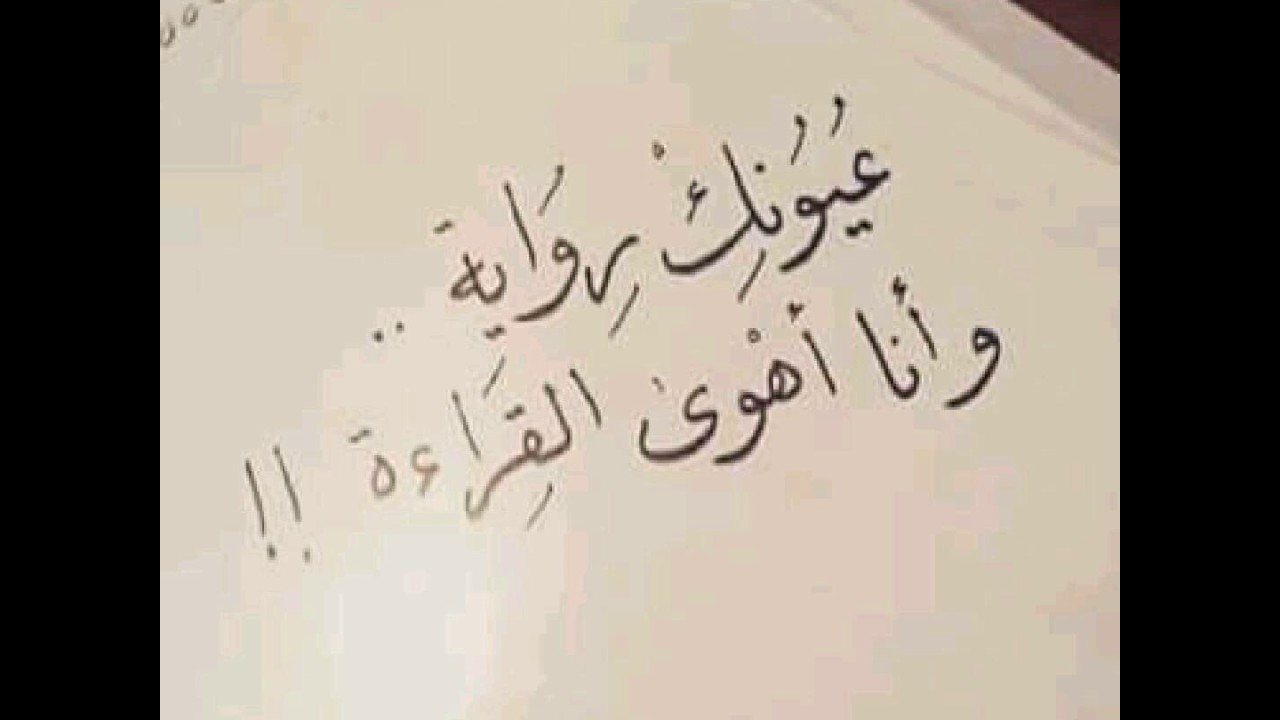 عُيُونِكْ رِوَاية ..
وأنا أهْوى القِرَاءة !!